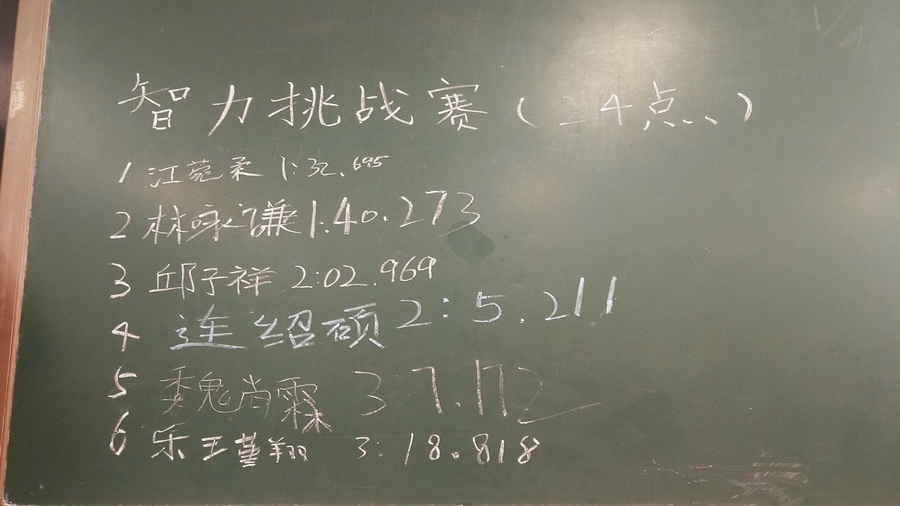 智力挑战赛（24点...）
1 江菀柔 1:32.695
2 林咏谦 1:40.273
3 邱子祥 2:02.969
4 连绍硕 2:5.211
5 魏肖霖 3 7.172
6 乐王堇翔 3:18.818